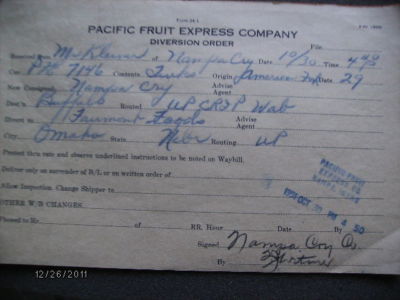 Form 24-1
PACIFIC FRUIT EXPRESS COMPANY
DIVERSION ORDER
File
Received from McKlein of Nampa Cry Date 10/30 4 40 PM
Car PFE 7146 Contents Turks Origin American Fox Date 29
New Consignee Nampa Cry Advise Agent
Dest'n Buffalo Routed UP CRIP Wab
Divert to Fairmont Foods Advise Agent
City Omaha State Nebr Routing UP
Protect thru rate and observe underlined instructions to be noted on Waybill.
Deliver only on surrender of B/L or on written order of
Allow Inspection. Change Shipper to
OTHER W/B CHANGES.
Phoned to Mr. of RR. Hour
PACIFIC FRUIT
EXPRESS CO.
NAMPA, IDAHO
OCT 30 PM 4 50
Signed Nampa Cry Co.
By
12/26/2011